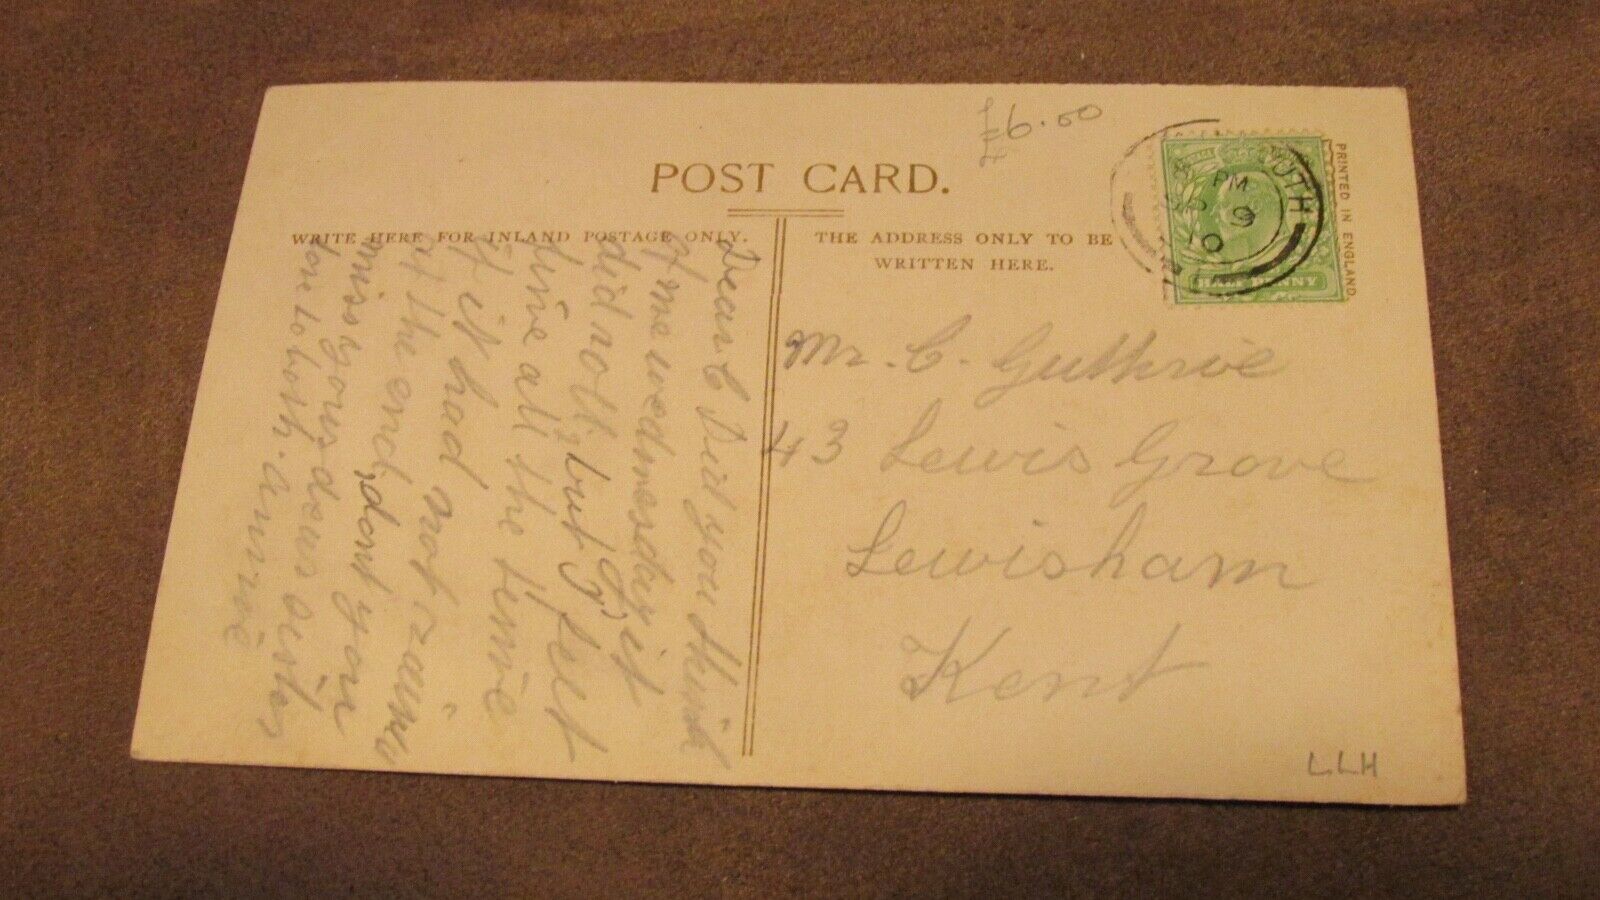 £6.00
POST CARD.
WRITE HERE FOR INLAND POSTAGE ONLY.
THE ADDRESS ONLY TO BE
WRITTEN HERE.
PRINTED IN ENGLAND.
PM
SP 9
10
OUTH
HALF PENNY
Dear C Did you think
of me wednesday it
did not but I felt
time all the time
if it had not
at the end, dont you
miss your dear sister
love to both. annie
Mr. C. Guthrie
43 Lewis Grove
Lewisham
Kent
LLH